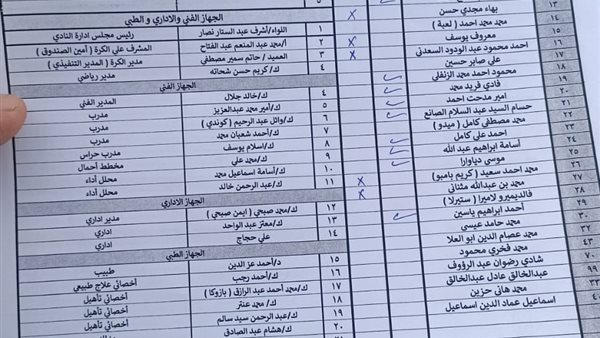 بهاء مجدي حسن ١٣
محمد محمد احمد ( لعبة ) ١٤
معروف يوسف ١٥
احمد محمود عبد الودود السعدنى ١٦
علي صابر حسين ١٧
محمود احمد محمد الزنفلي ١٨
فادي فريد محمد ١٩
امير مدحت احمد ٢٠
حسام السيد عبد السلام الصانع ٢١
محمد مصطفى كامل ( ميدو ) ٢٢
احمد علي كامل ٢٣
أسامة ابراهيم عبد الله ٢٤
موسى دياوارا ٢٥
محمد احمد سعيد ( كريم بامبو ) ٢٦
محمد بن عبدالله مثناني ٢٧
فالديميرو لاميرا ( ستيرلا ) ٢٨
أحمد ابراهيم ياسين ٢٩
محمد حامد عيسى ٣٠
محمد عصام الدين ابو العلا ٣٢
محمد فخري محمود ٤٣
شادي رضوان عبد الرؤوف ٧٠
عبدالخالق عادل عبدالخالق ٩٩
محمد هانى حزين ٣٣
اسماعيل عماد الدين اسماعيل ٤٠
الجهاز الفني والاداري و الطبي
١ اللواء/أشرف عبد الستار نصار رئيس مجلس ادارة النادي
٢ أ/محمد عبد المنعم عبد الفتاح المشرف علي الكرة ( أمين الصندوق )
٣ العميد/ حاتم سمير مصطفي مدير الكرة ( المدير التنفيذي )
٤ ك/ كريم حسن شحاته مدير رياضي
الجهاز الفني
٤ ك/خالد جلال المدير الفني
٥ ك/أمير محمد عبدالعزيز مدرب
٦ ك/وائل عبد الرحيم ( كوندي ) مدرب
٧ ك/أحمد شعبان محمد مدرب
٨ ك/اسلام يوسف مدرب
٩ ك/محمد علي مدرب حراس
١٠ ك/أسامة اسماعيل محمد مخطط أحمال
١١ ك/عبد الرحمن خالد محلل أداء
محلل أداء
الجهاز الاداري
١٢ ك/محمد صبحي ( ايمن صبحي ) مدير اداري
١٣ ك/معتز عبد الواحد اداري
١٤ علي حجاج
الجهاز الطبي
١٥ د/أحمد عز الدين طبيب
١٦ ك/أحمد رجب أخصائي علاج طبيعي
١٧ ك/محمد أحمد عبد الرازق ( بازوكا ) أخصائي تأهيل
١٨ ك/محمد عنتر أخصائي تأهيل
١٩ ك/عبد الرحمن سيد سالم أخصائي تأهيل
٢٠ ك/هشام عبد الصادق